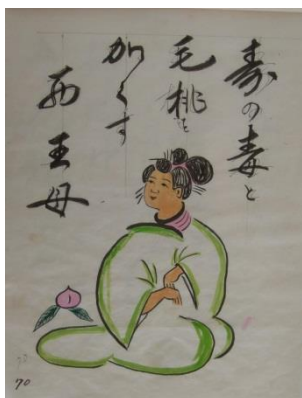 寿の毒と
毛桃を
かくす
西王母
70